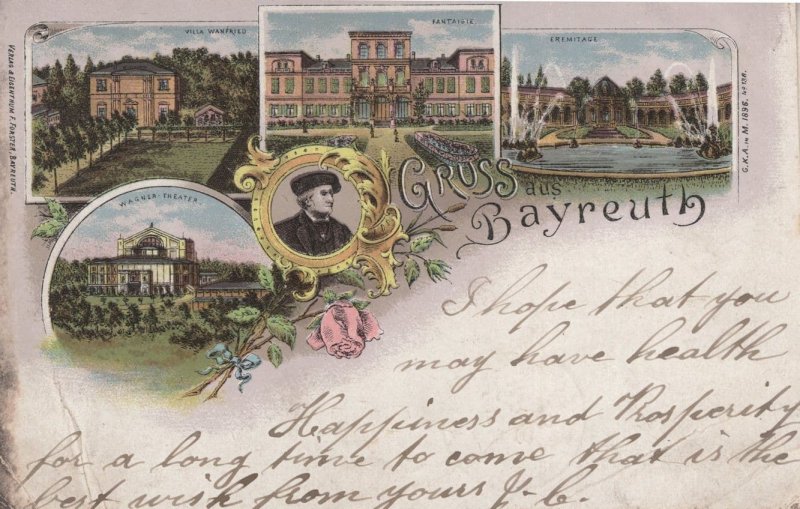 VERLAG & EIGENTHUM F. FORSTER, BAYREUTH.
VILLA WANFRIED
FANTAISIE.
EREMITAGE
G.K.A. IN M. 1896. No 138.
WAGNER-THEATER.
GRUSS aus
Bayreuth
I hope that you
may have health
Happiness and Prosperity
for a long time to come that is the
best wish from yours J. C.